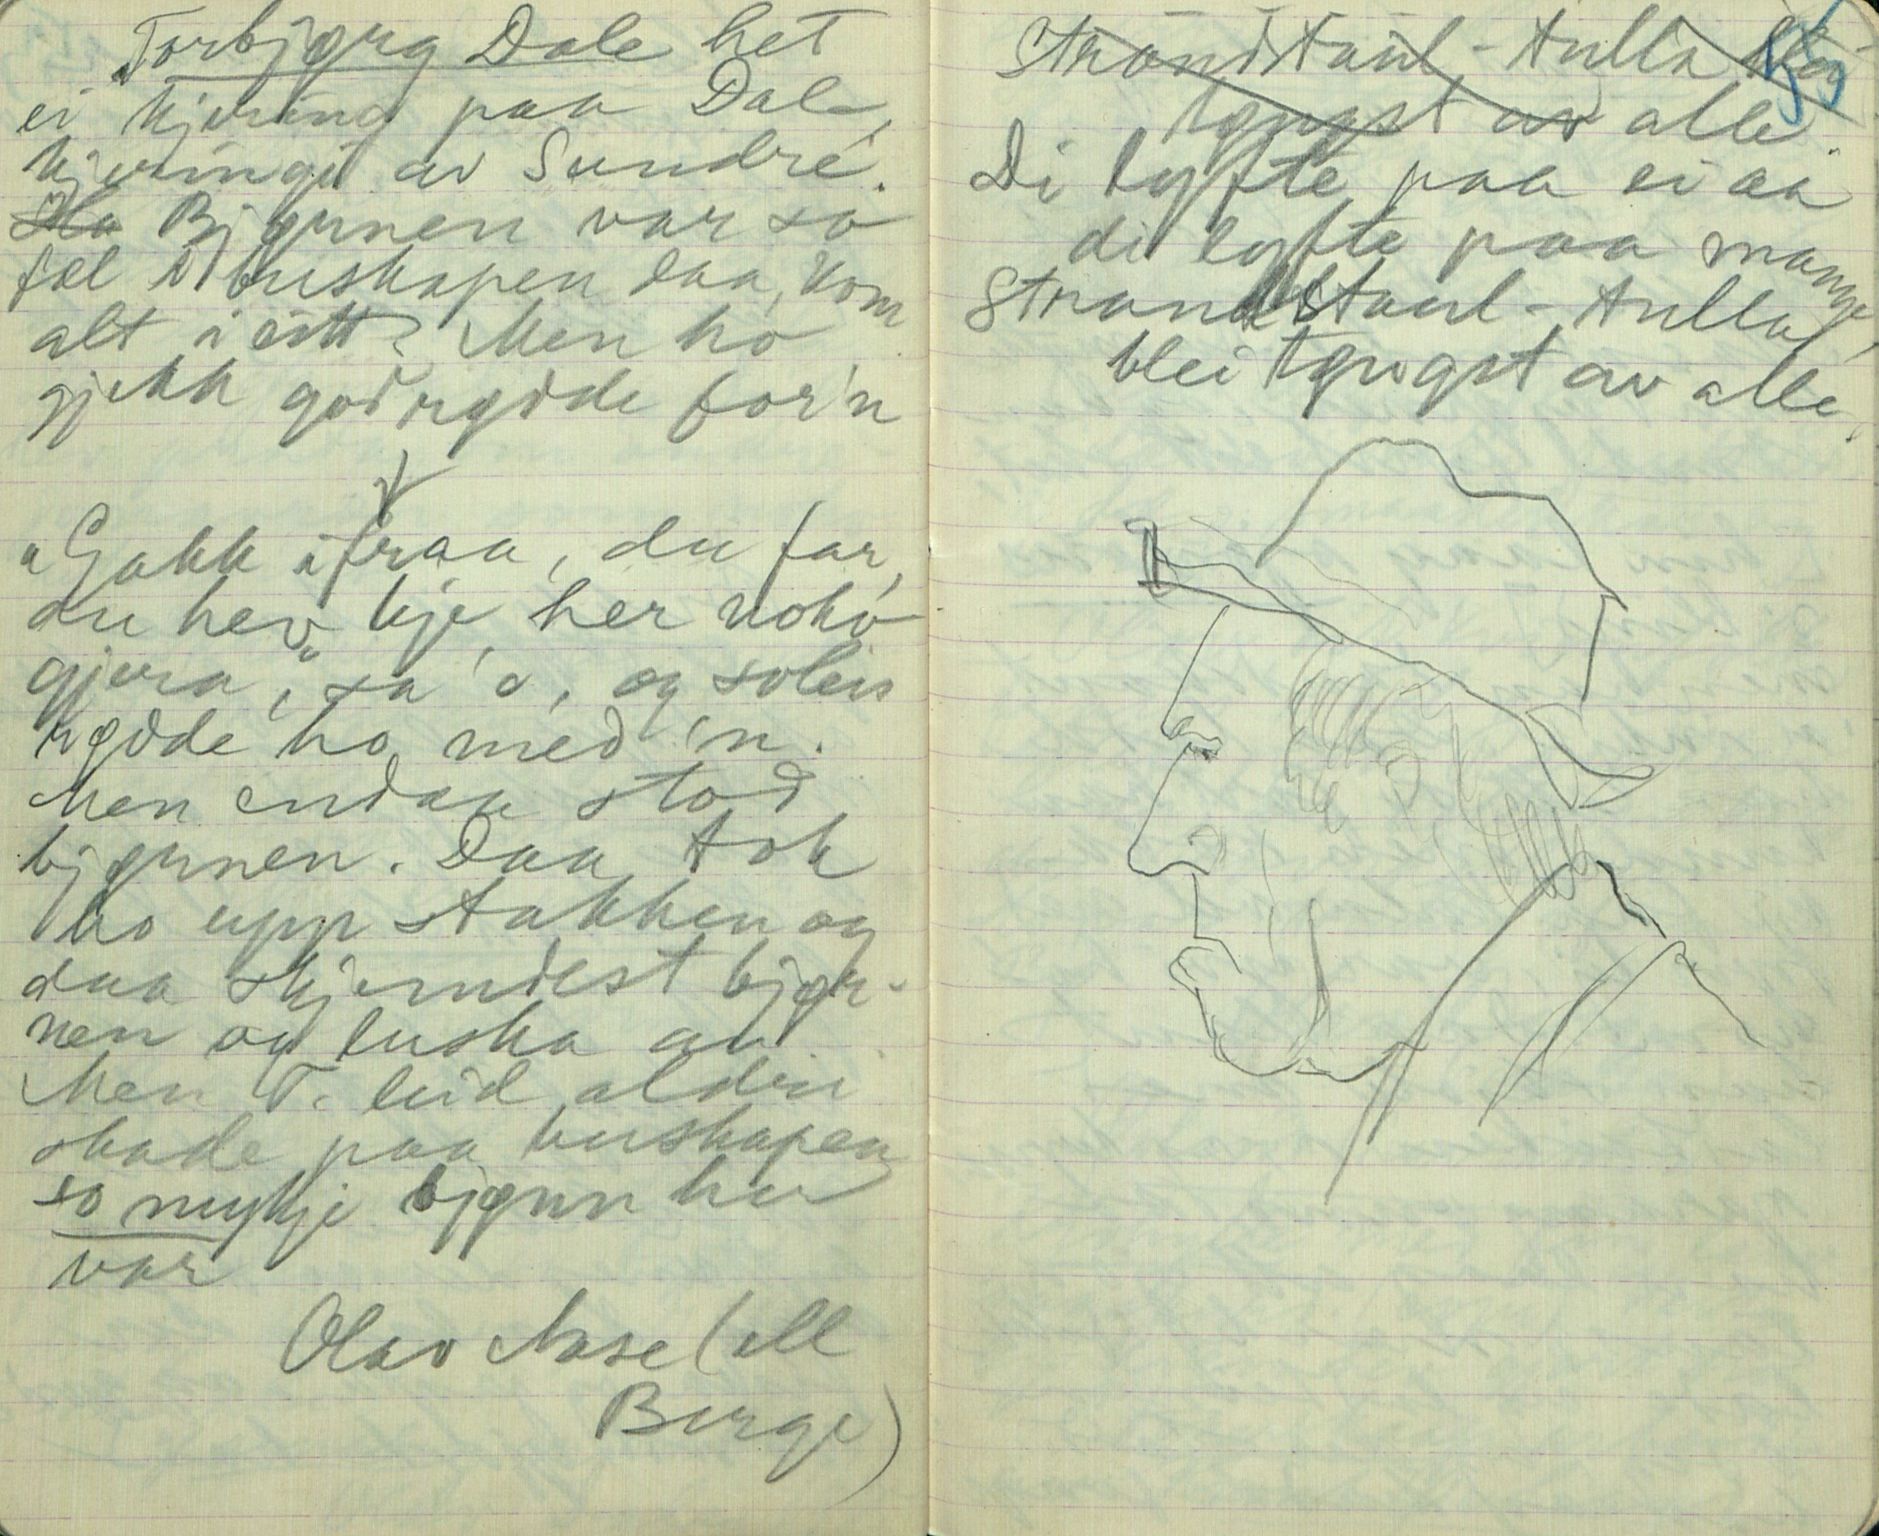 Torbjørg Dale het
ei kjering paa Dale,
kjeringi av Sundre.
Ho Bjørnen var so
fæl i buskapen daa, kom
alt i eitt. Men ho
gjekk godrøde for'n
"Gakk ifraa, du far,
du hev kje her noko
gjera", sa 'o, og soleis
røde ho med 'n.
Men endaa stod
bjørnen. Daa tok
ho upp stakken og
daa skjemdest bjør-
nen og luska av.
Men T. leid aldri
skade paa buskapen
so mykje bjønn her
var
Olav Aase (ell
Berge)
55
Strandstaul-Tulla
tøngst av alle.
Di lyfte paa ei aa
di lyfte paa mange,
Strandstaul-Tulla
blei tøngst av alle.